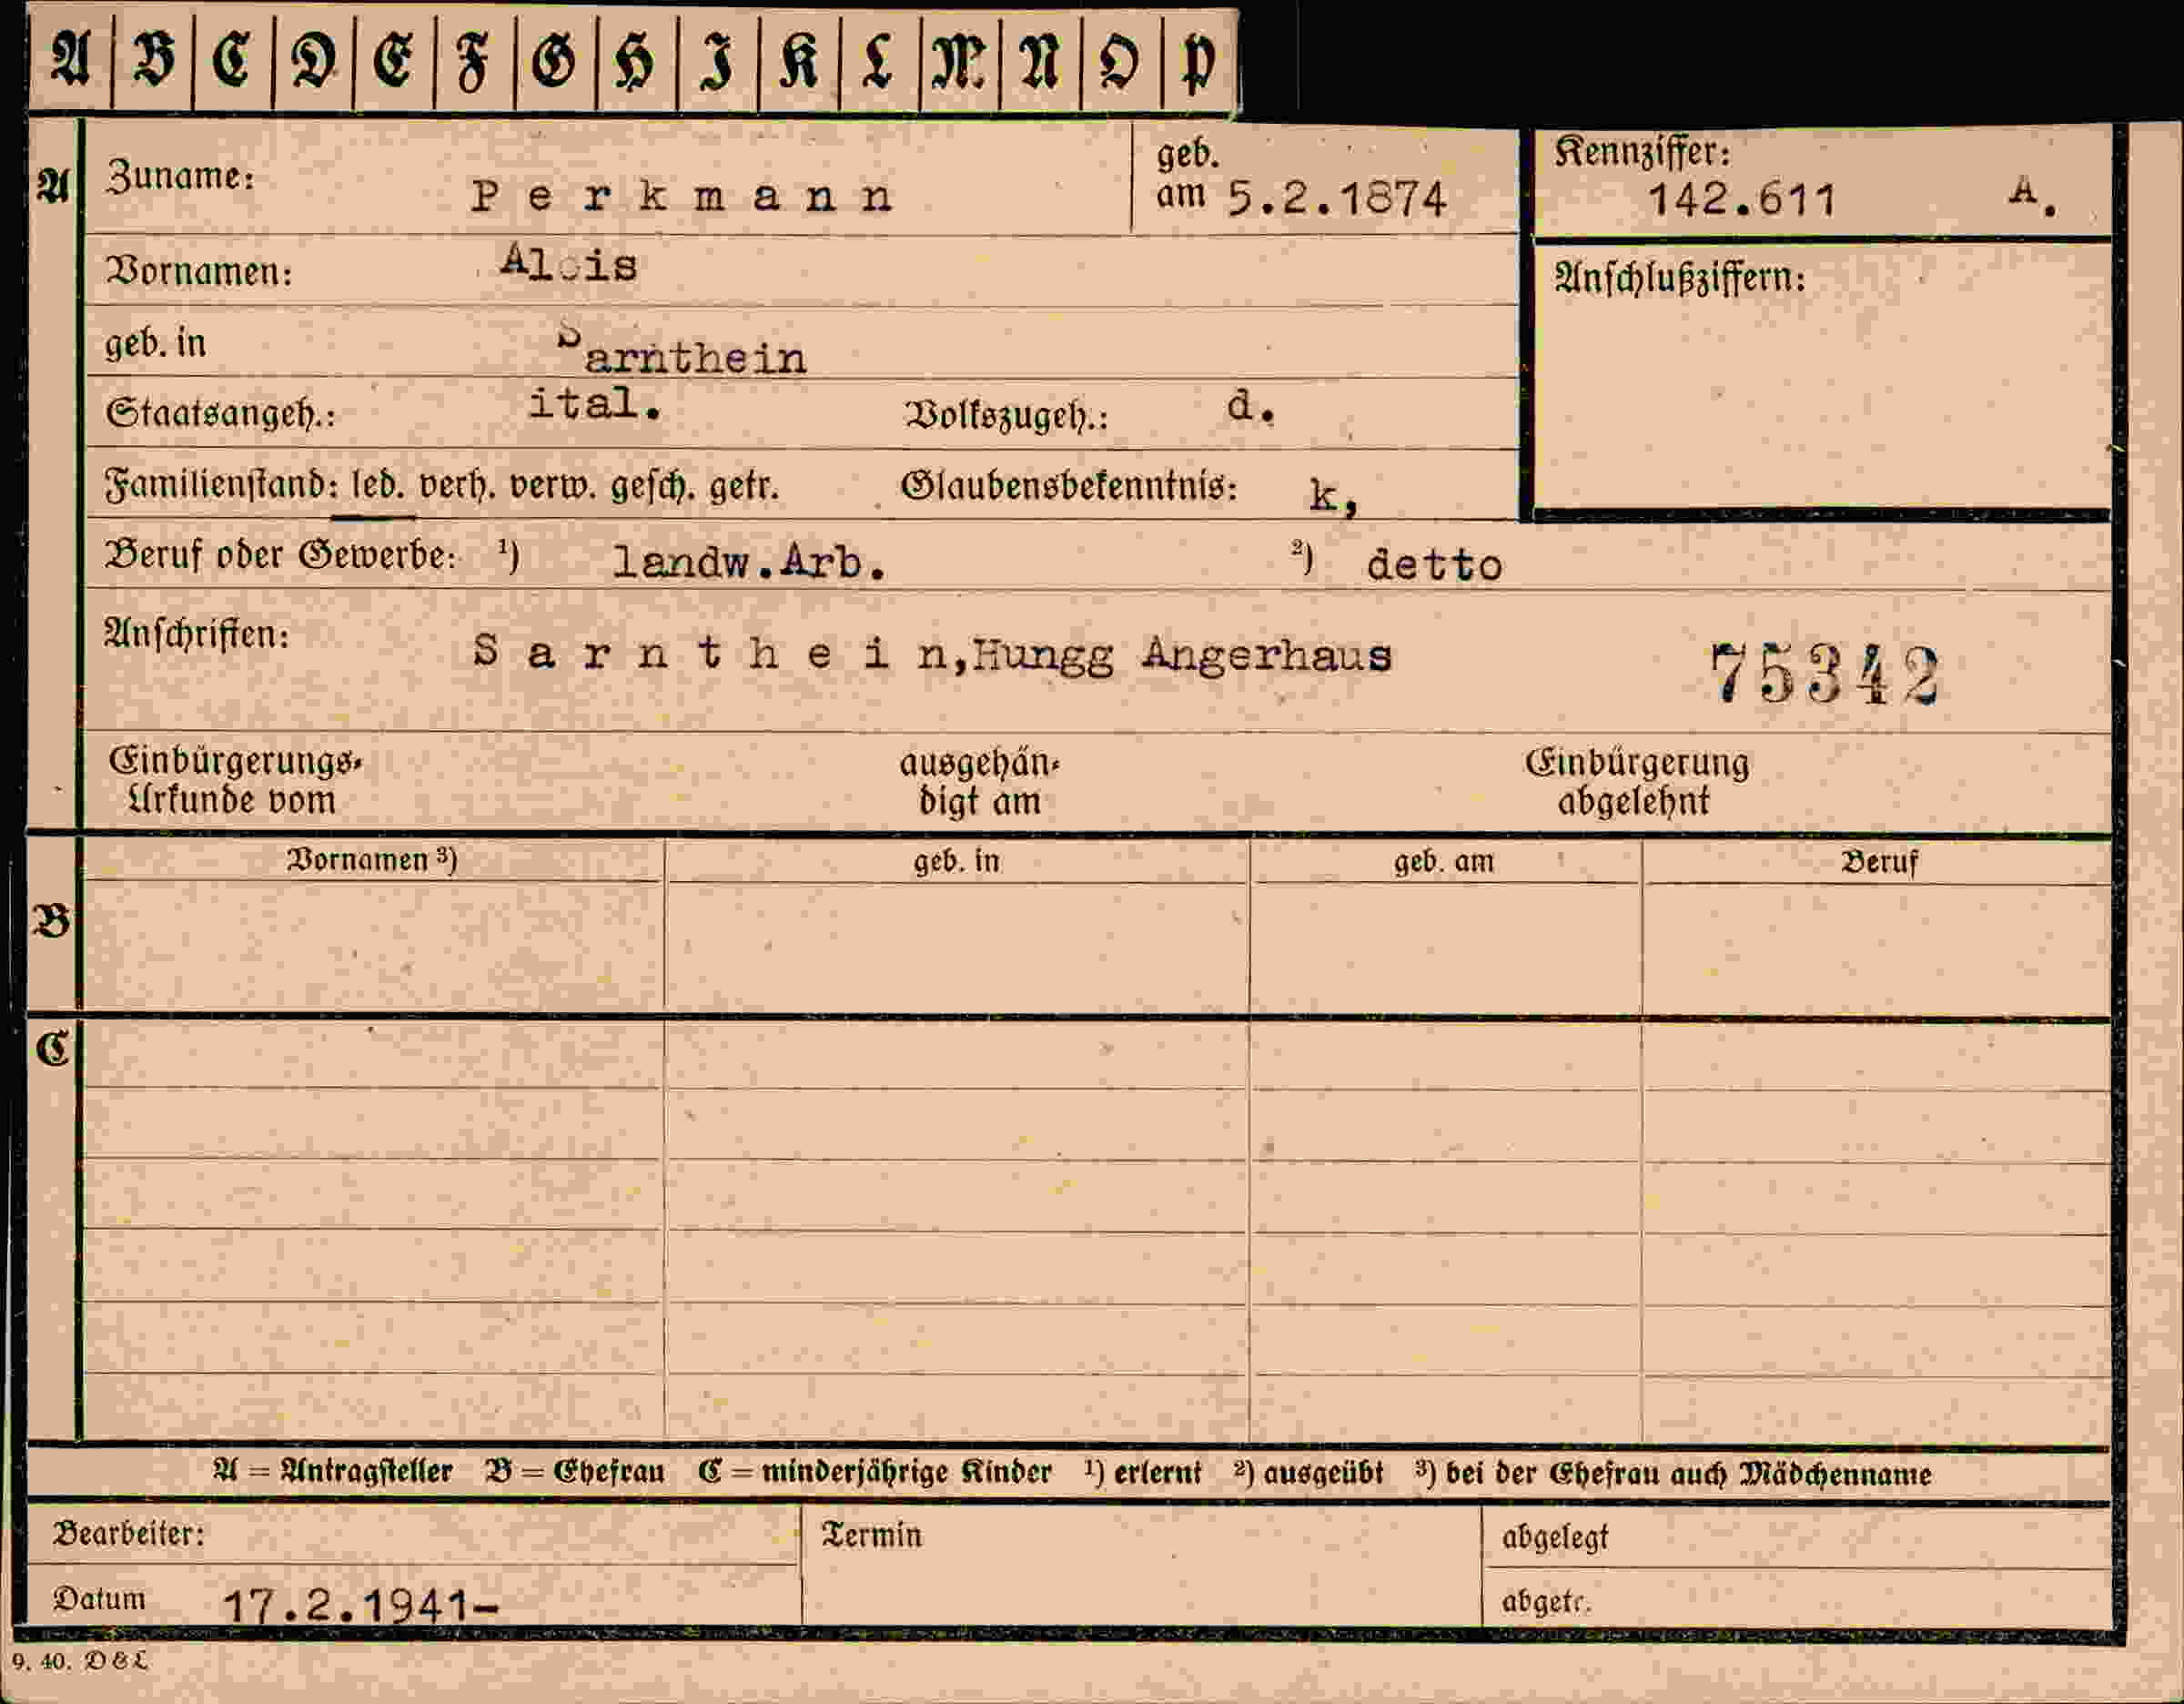 A B C D E F G H I K L M N O P
A Zuname: Perkmann geb. am 5.2.1874 Kennziffer: 142.611 A.
Vornamen: Alois Anschlußziffern:
geb. in Sarnthein
Staatsangeh.: ital. Volkszugeh.: d.
Familienstand: led. verh. verw. gesch. getr. Glaubensbekenntnis: k,
Beruf oder Gewerbe: ¹) landw.Arb. ²) detto
Anschriften: Sarnthein,Hungg Angerhaus 75342
Einbürgerungs- ausgehän- Einbürgerung
Urkunde vom digt am abgelehnt
Vornamen ³) geb. in geb. am Beruf
B
C
A = Antragsteller B = Ehefrau C = minderjährige Kinder ¹) erlernt ²) ausgeübt ³) bei der Ehefrau auch Mädchenname
Bearbeiter: Termin abgelegt
Datum 17.2.1941- abgetr.
9. 40. D & L